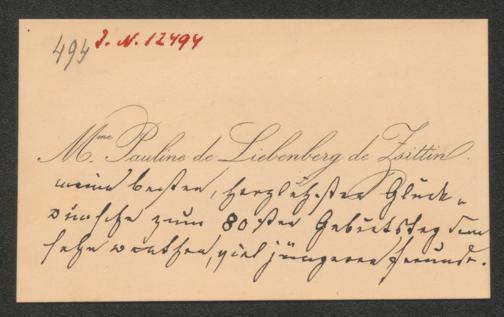 494 I. N. 12494
Mme Pauline de Liebenberg de Zsittin.
meine besten, herzlichsten Glück-
wünsche zum 80sten Geburtstag dem
sehr werthen, viel jüngeren Freunde.